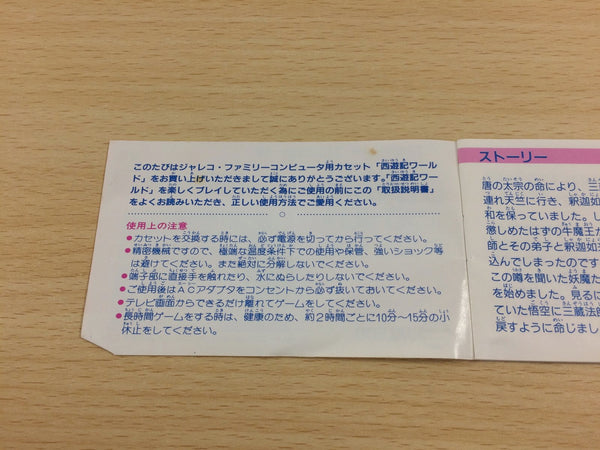 このたびはジャレコ・ファミリーコンピュータ用カセット「西遊記ワール
ド」をお買い上げいただきまして誠にありがとうございます。「西遊記ワー
ルド」を楽しくプレイしていただく為にご使用の前にこの「取扱説明書」
をよくお読みいただき、正しい使用方法でご愛用ください。
使用上の注意
●カセットを交換する時には、必ず電源を切ってから行ってください。
●精密機械ですので、極端な温度条件下での使用や保管、強いショック等
は避けてください。また絶対に分解しないでください。
●端子部に直接手を触れたり、水にぬらしたりしないでください。
●ご使用後はACアダプタをコンセントから必ず抜いておいてください。
●テレビ画面からできるだけ離れてゲームをしてください。
●長時間ゲームをする時は、健康のため、約2時間ごとに10分〜15分の小
休止をしてください。
ストーリー
唐の太宗の命により、三
連れ天竺に行き、釈迦如
和を保っていました。し
懲しめたはずの牛魔王が
師とその弟子と釈迦如
込んでしまったのです
この噂を聞いた妖魔た
を始めました。見るに
ていた悟空に三蔵法師
戻すように命じまし